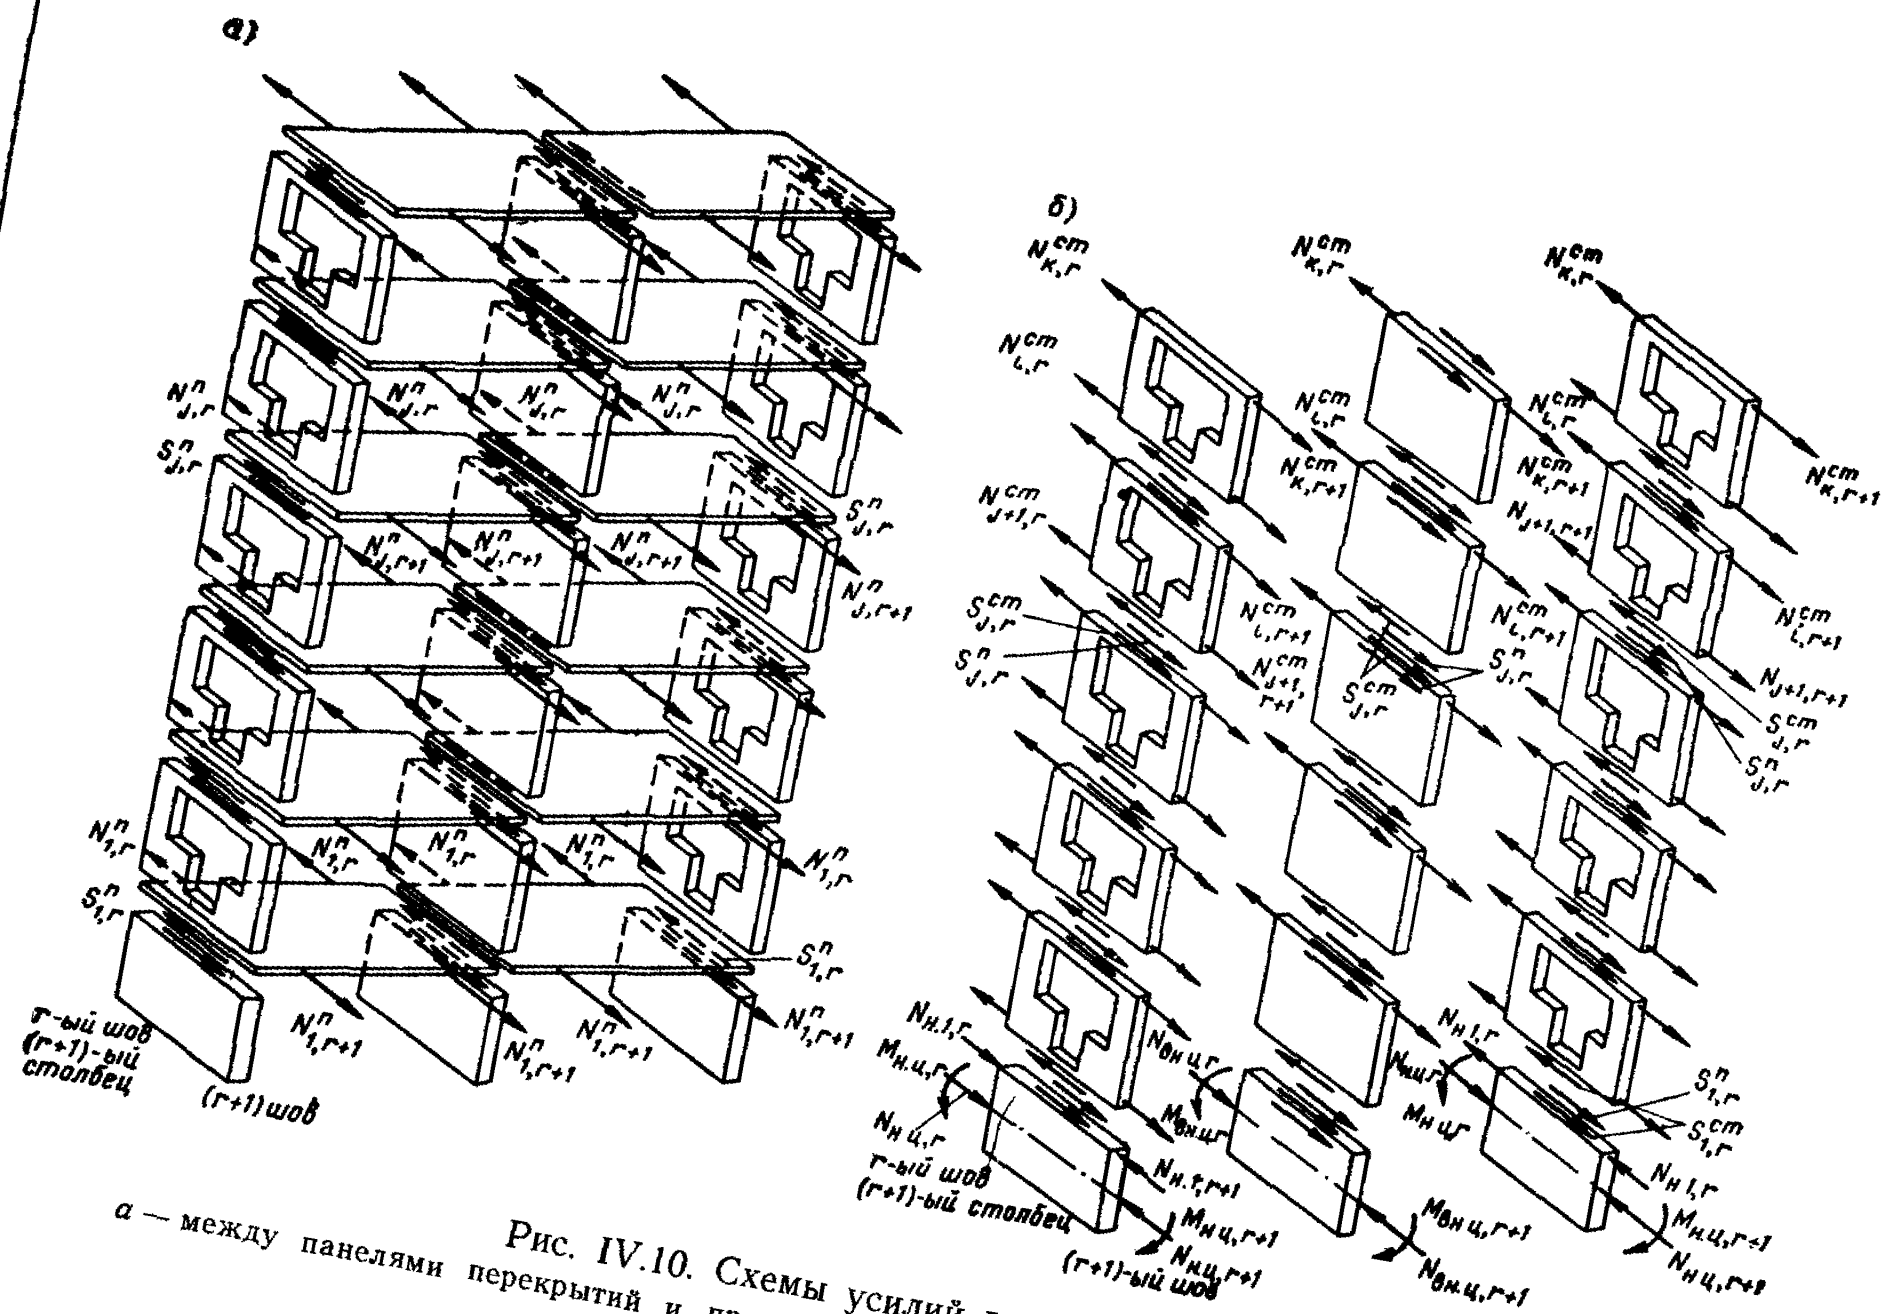 а)
N^n_{j,r}
N^n_{j,r}
N^n_{j,r}
N^n_{j,r}
S^n_{j,r}
S^n_{j,r}
N^n_{j,r+1}
N^n_{j,r+1}
N^n_{j,r+1}
N^n_{j,r+1}
N^n_{1,r}
N^n_{1,r}
N^n_{1,r}
N^n_{1,r}
N^n_{1,r}
S^n_{1,r}
S^n_{1,r}
N^n_{1,r+1}
N^n_{1,r+1}
N^n_{1,r+1}
N^n_{1,r+1}
r-ый шов
(r+1)-ый
столбец
(r+1) шов
б)
N^{cm}_{к,r}
N^{cm}_{к,r}
N^{cm}_{к,r}
N^{cm}_{i,r}
N^{cm}_{i,r}
N^{cm}_{i,r}
N^{cm}_{к,r+1}
N^{cm}_{к,r+1}
N^{cm}_{к,r+1}
N^{cm}_{j+1,r}
N_{j+1,r+1}
N^{cm}_{i,r+1}
N^{cm}_{i,r+1}
N^{cm}_{i,r+1}
S^{cm}_{j,r}
S^n_{j,r}
N^{cm}_{j+1,
r+1}
S^{cm}_{j,r}
S^n_{j,r}
N_{j+1,r+1}
S^{cm}_{j,r}
S^n_{j,r}
N_{н.1,r}
N_{вн ц,r}
N_{н 1,r}
M_{н.ц,r}
N_{н.ц,r}
M_{вн.ц,r}
M_{н ц,r}
N_{н ц,r}
S^n_{1,r}
S^{cm}_{1,r}
r-ый шов
(r+1)-ый столбец
N_{н.1,r+1}
N_{н 1,r}
M_{н ц,r+1}
M_{вн ц,r+1}
M_{н.ц,r+1}
N_{н.ц,r+1}
N_{вн.ц,r+1}
N_{н ц,r+1}
(r+1)-ый шов
Рис. IV.10. Схемы усилий
а — между панелями перекрытий и